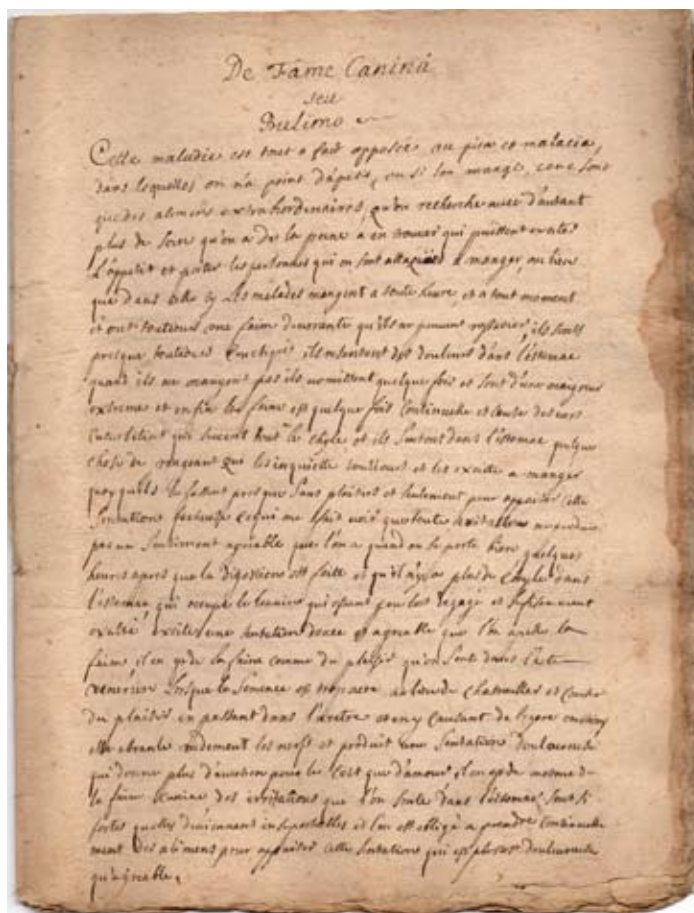 De Fame Canina
seu
Bulimo
Cette maladie est tout a fait opposée au pica et malacia,
dans lesquelles on n'a point d'apetit, ou si l'on mange, ce ne sont
que des alimens extraordinaires, qu'on recherche avec d'autant
plus de soin qu'on a de la peine a en trouver qui puissent exciter
L'appetit et porter les personnes qui en sont attaquées a manger, au lieu
que dans celle cy Les malades mangent a toute heure, et a tout moment
et ont toutjours une faim devorante qu'ils ne peuvent rassasier, ils sont
presque toutjours ils ressentent des douleurs dans l'estomac
quand ils ne mangent pas ils vomissent quelque fois et sont d'une maigreur
extreme et enfin la faim est quelque fois continuelle et cause des vers
qui sucent tout le chyle et ils sentent dans l'estomac quelque
chose de rongeant qui les inquiette toutjours et les excitte a manger
quoy qu'ils le fassent presque sans plaisir et seulement pour appaiser cette
sensation facheuse ce qui me fait voir que toute irritation ne produit
pas un sentiment agreable que l'on a quand on se porte bien quelques
heures apres que la digestion est faite et qu'il n'y a plus de chyle dans
l'estomac, qui occupe le levain qui etant pour lors degagé et suffisament
exalté excite une sensation douce et agreable que l'on apelle la
faim, il en est de la faim comme du plaisir qu'on sent dans l'acte
venerien Lorsque la semence est trop acre au lieu de chatouiller et causer
du plaisir en passant dans l'uretre et en y causant de legere
elle ebranle rudement les nerfs et produit une sensation douloureuse
qui donne plus d'aversion pour le que d'amour il en est de meme de
la faim canine des irritations que l'on sent dans l'estomac sont si
fortes qu'elles deviennent insuportables et l'on est obligé a prendre continuelle
ment des alimens pour appaiser cette sensation qui est plus douloureuse
qu'agreable.